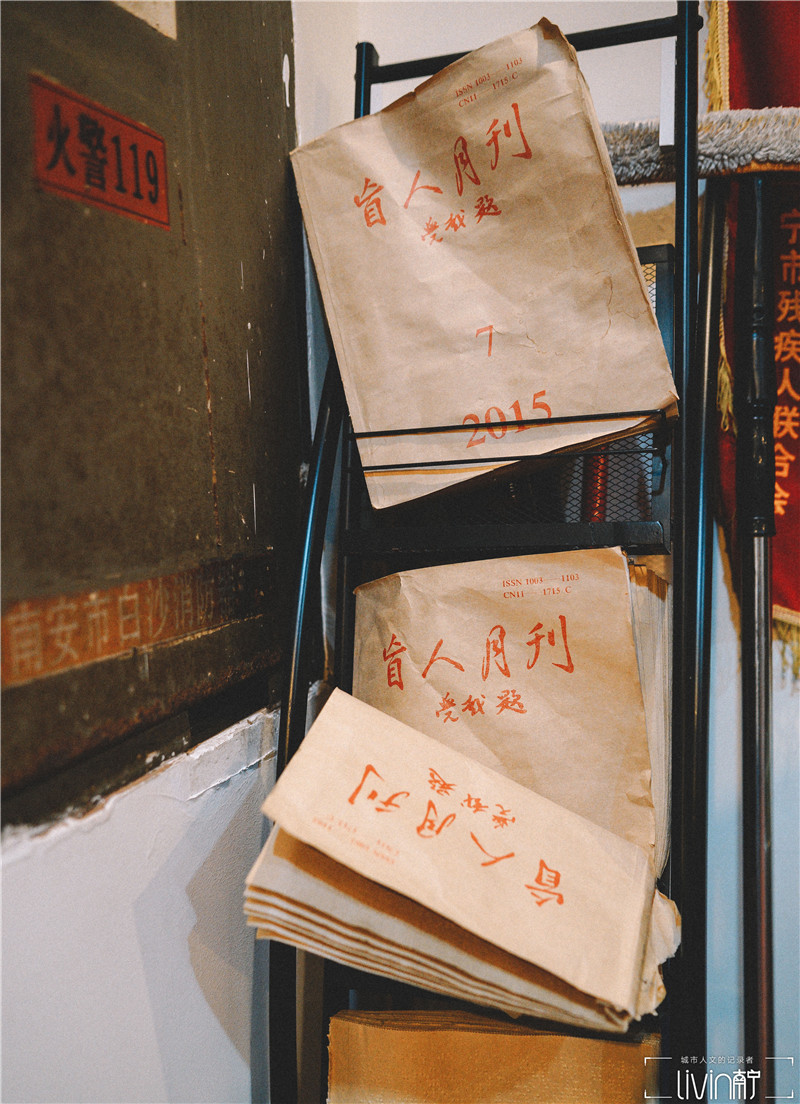 火警119
南安市白沙消防
ISSN 1003 1103
CN11 1715 C
盲人月刊
7
2015
宁市残疾人联合会
ISSN 1003 1103
CN11 1715 C
盲人月刊
盲人月刊
ISSN 1003 1103
CN11 1715 C
城市人文的记录者
livin南宁